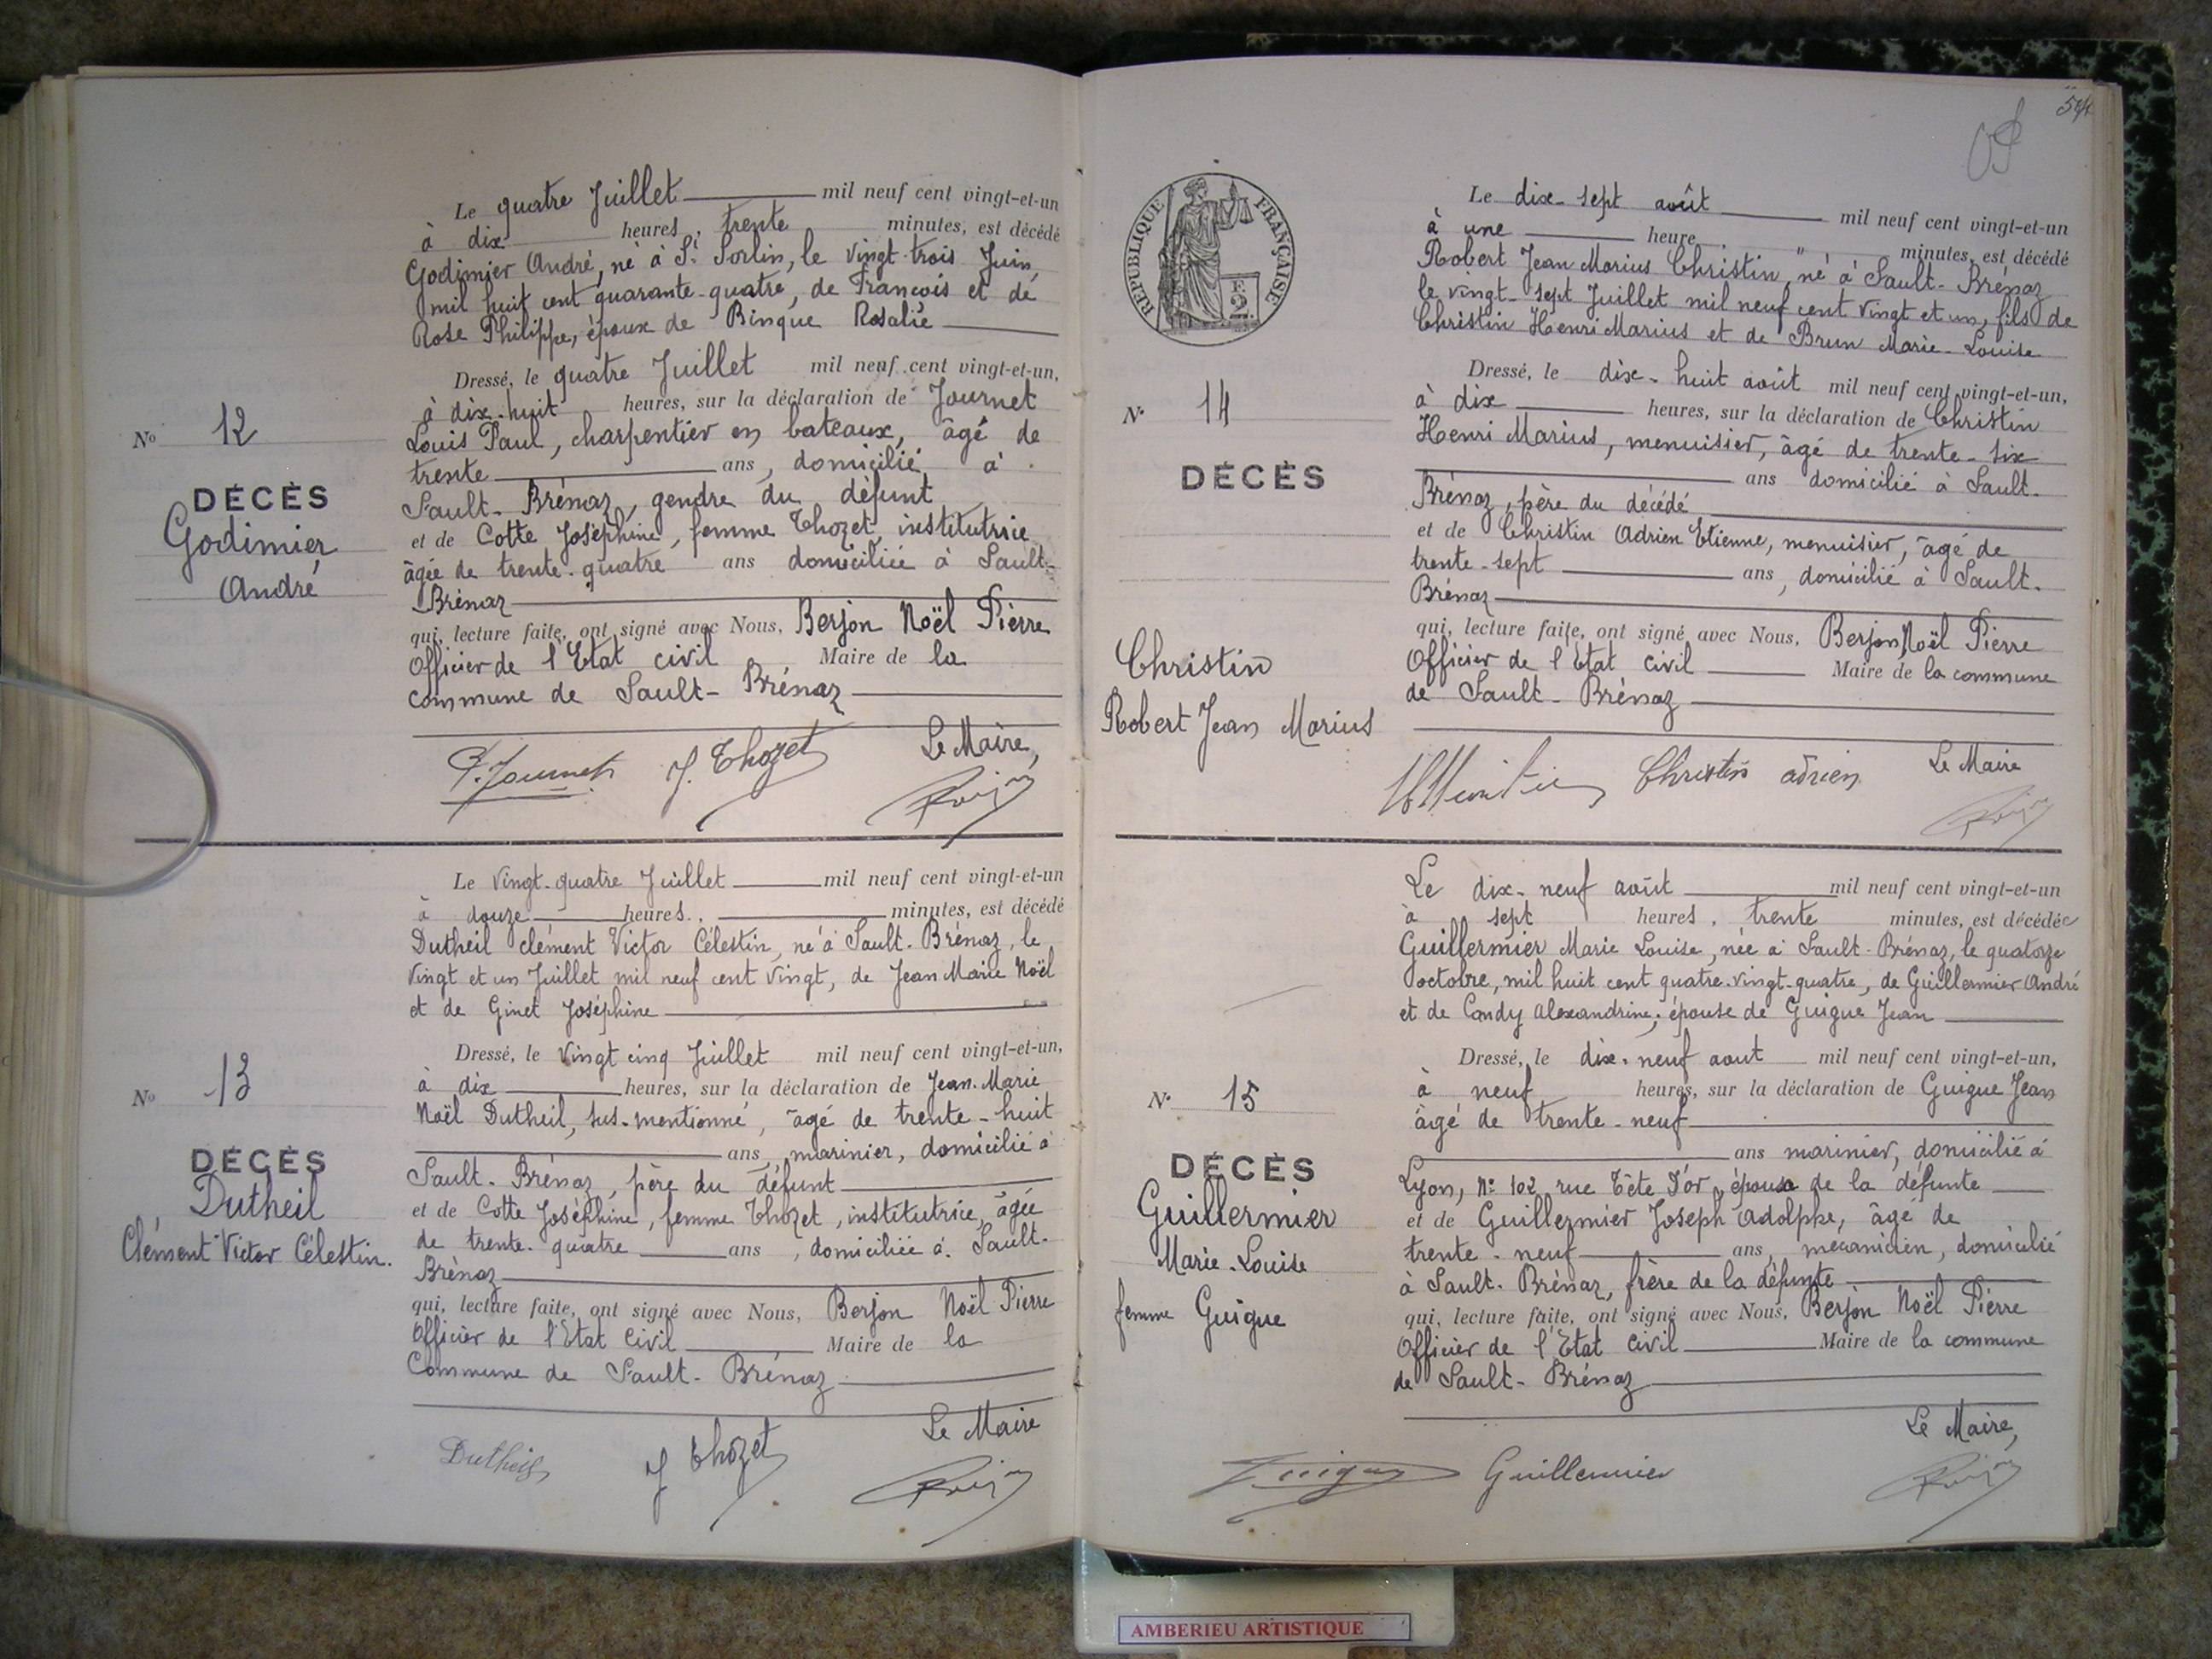 Le quatre Juillet mil neuf cent vingt-et-un
à dix heures, trente minutes, est décédé
Godimier André, né à St Sorlin, le vingt-trois Juin,
mil huit cent quarante-quatre, de François et de
Rose Philippe, époux de Binque Rosalie
Dressé, le quatre Juillet mil neuf cent vingt-et-un,
à dix-huit heures, sur la déclaration de Journet
Louis Paul, charpentier en bateaux, âgé de
trente ans, domicilié à
Sault-Brénaz, gendre du défunt
et de Cotte Joséphine, femme Thozet, institutrice
âgée de trente-quatre ans domiciliée à Sault-
Brénaz
qui, lecture faite, ont signé avec Nous, Berjon Noël Pierre
Officier de l'Etat civil Maire de la
commune de Sault-Brénaz
P. Journet J. Thozet Le Maire,
No 12
DÉCÈS
Godimier
André
Le vingt-quatre Juillet mil neuf cent vingt-et-un
à douze heures, minutes, est décédé
Dutheil clément Victor Célestin, né à Sault-Brénaz, le
vingt et un Juillet mil neuf cent vingt, de Jean Marie Noël
et de Ginet Joséphine
Dressé, le vingt cinq Juillet mil neuf cent vingt-et-un,
à dix heures, sur la déclaration de Jean-Marie
Noël Dutheil, sus-mentionné, âgé de trente-huit
ans, marinier, domicilié à
Sault-Brénaz, père du défunt
et de Cotte Joséphine, femme Thozet, institutrice, âgée
de trente-quatre ans, domiciliée à Sault-
Brénaz
qui, lecture faite, ont signé avec Nous, Berjon Noël Pierre
Officier de l'Etat civil Maire de la
Commune de Sault-Brénaz
Dutheil J Thozet Le Maire
No 13
DÉCÈS
Dutheil
Clément Victor Célestin.
54
RÉPUBLIQUE FRANÇAISE
2
Le dix-sept août mil neuf cent vingt-et-un
à une heure, " minutes, est décédé
Robert Jean Marius Christin, né à Sault-Brénaz
le vingt-sept Juillet mil neuf cent vingt et un, fils de
Christin Henri Marius et de Brun Marie-Louise
Dressé, le dix-huit août mil neuf cent vingt-et-un,
à dix heures, sur la déclaration de Christin
Henri Marius, menuisier, âgé de trente-six
ans domicilié à Sault-
Brénaz, père du décédé
et de Christin Adrien Etienne, menuisier, âgé de
trente-sept ans, domicilié à Sault-
Brénaz
qui, lecture faite, ont signé avec Nous, Berjon Noël Pierre
Officier de l'Etat civil Maire de la commune
de Sault-Brénaz
Christin adrien Le Maire
No 14
DÉCÈS
Christin
Robert Jean Marius
Le dix-neuf août mil neuf cent vingt-et-un
à sept heures, trente minutes, est décédée
Guillermier Marie Louise, née à Sault-Brénaz, le quatorze
octobre, mil huit cent quatre-vingt-quatre, de Guillermier André
et de Candy Alexandrine; épouse de Guigue Jean
Dressé, le dix-neuf aout mil neuf cent vingt-et-un,
à neuf heures, sur la déclaration de Guigue Jean
âgé de trente-neuf
ans marinier, domicilié à
Lyon, No 102 rue Tête D'or, époux de la défunte
et de Guillermier Joseph Adolphe, âgé de
trente-neuf ans, mecanicien, domicilié
à Sault-Brénaz, frère de la défunte
qui, lecture faite, ont signé avec Nous, Berjon Noël Pierre
Officier de l'Etat civil Maire de la commune
de Sault-Brénaz
Guigue Guillermier Le Maire,
No 15
DÉCÈS
Guillermier
Marie-Louise
femme Guigue
AMBERIEU ARTISTIQUE